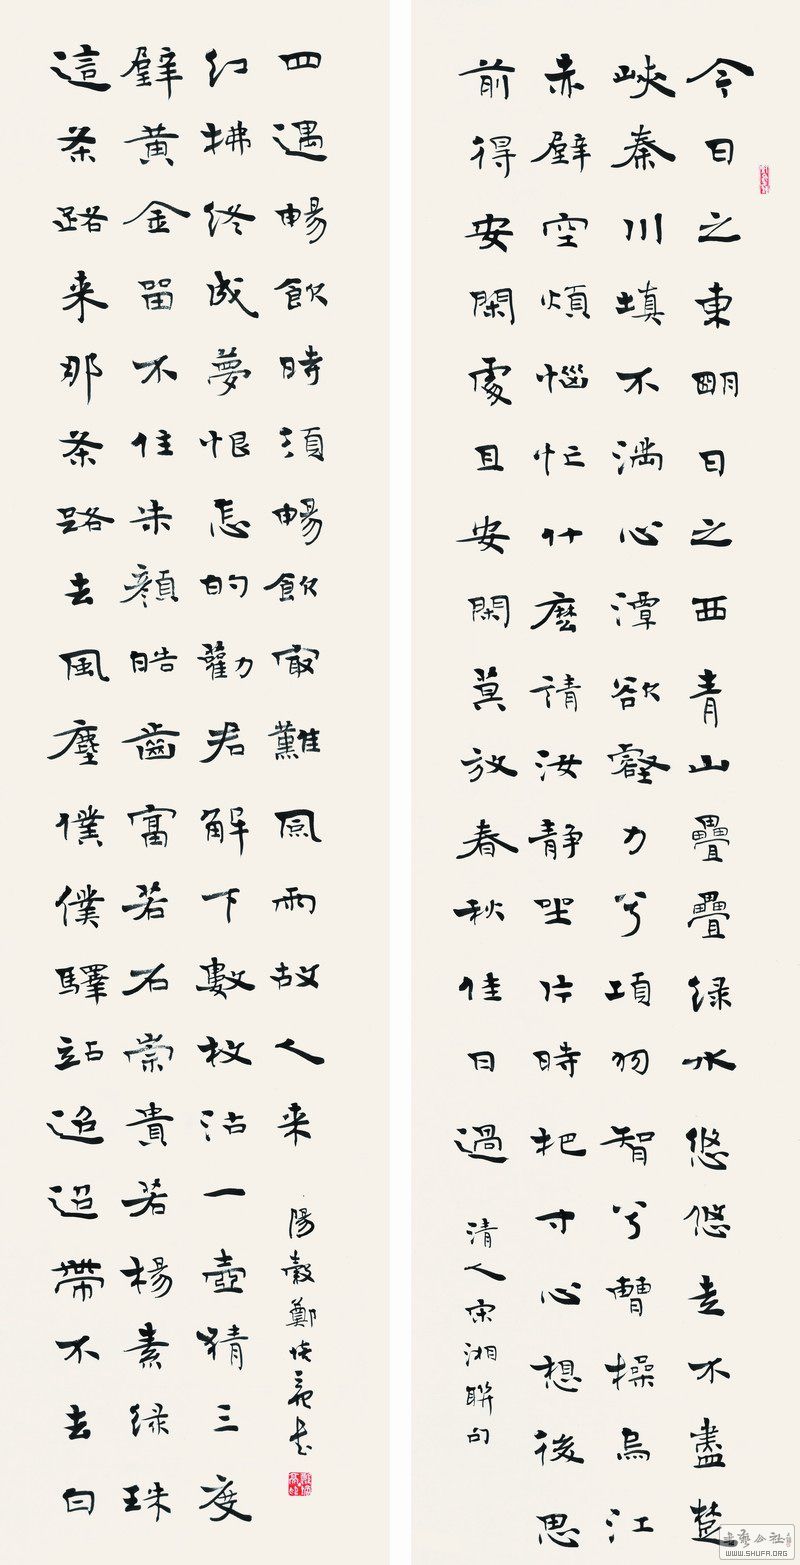 今日之東明日之西青山疊疊绿水悠悠走不盡楚
峽秦川填不满心潭欲壑力兮項羽智兮曹操烏江
赤壁空煩惱忙什麽請汝静坐片時把寸心想後思
前得安閑處且安閑莫放春秋佳日過
清人宋湘聯句
這条路来那条路去風塵僕僕驛站迢迢帶不去白
璧黃金留不住朱顏皓齒富若石崇貴若楊素绿珠
红拂终成夢恨怎的勸君解下數枚沽一壺猜三度
四遇暢飲時須暢飲最難風雨故人来
陽穀鄭培亮書
书艺公社
WWW.SHUFA.ORG